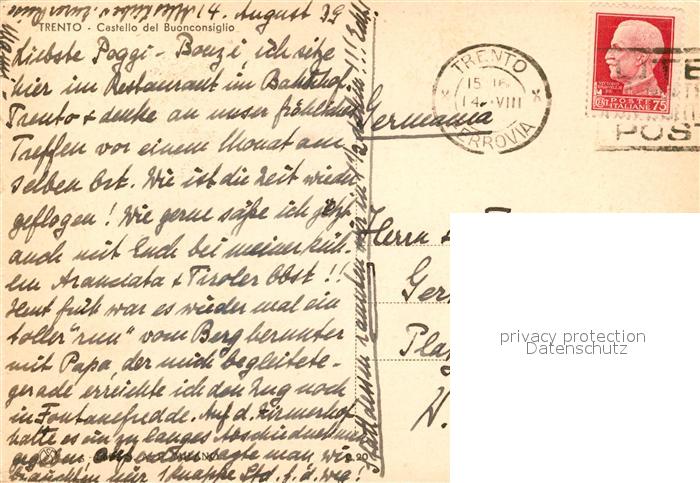 14. August 39
TRENTO - Castello del Buonconsiglio
Liebste Poggi - Bouzi, ich sitze
hier im Restaurant im Bahnhof
Trento & denke an unser fröhliches
Treffen vor einem Monat am
selben Ort. Wie ist die Zeit wieder
geflogen! Wie gerne säße ich jetzt
auch mit Euch bei meiner küh-
len Aranciata & Tiroler Obst!!
Heut früh war es wieder mal ein
toller "run" vom Berg herunter
mit Papa, der mich begleitete -
gerade erreichte ich den Zug noch
in Fontanefredde. Auf d.
hatte es ein zu langes Abschiednehmen
gegeben man wir
brauchten nur 1 knappe Std. f. d. Weg!
Stattdessen rannten wir in 1/2
TRENTO
15 16
14 VIII
FERROVIA
POSTE
ITALIANE
CENT 75
POST
Germania
Herrn
Ger
Pla
W.
privacy protection
Datenschutz